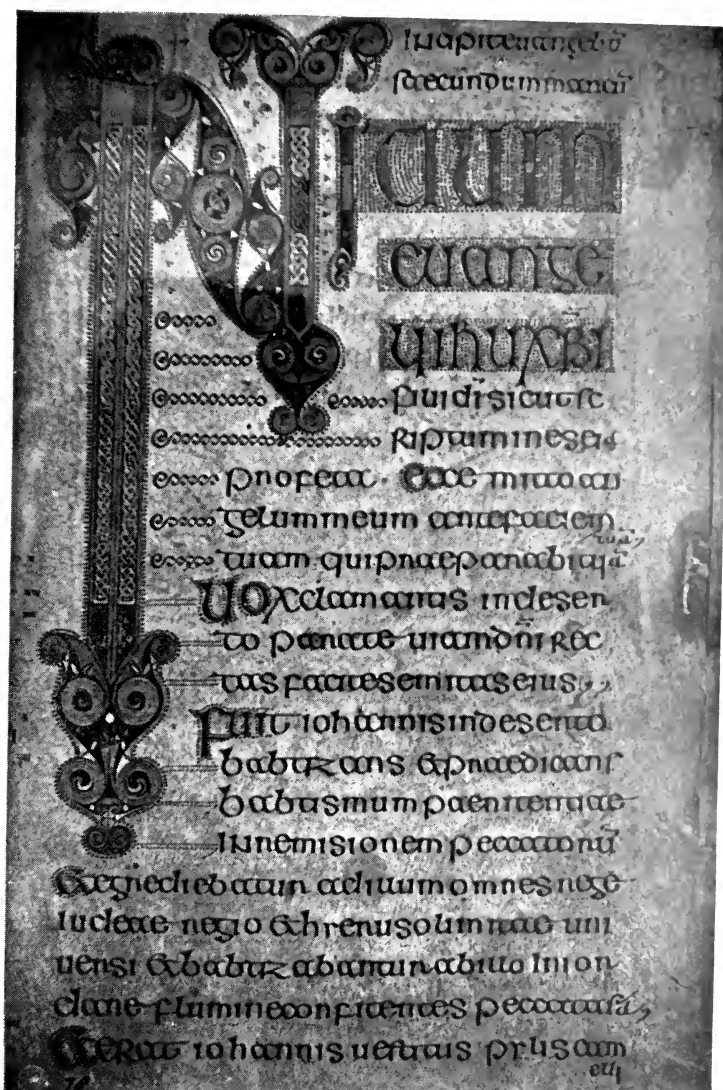 INcipit euangeliū
secundum marcū
INITIUM
EUANGE
LII IHU XPI
filii dī sicut sc
riptum in eseia
profeta · Ecce mitto an
gelum meum ante faciem
tuam qui praeparabit uiā tuā,
Uox clamantis in deser
to parate uiam dn̄i rec
tas facite semitas eius,,
Fuit iohannis in deserto
babtizans & praedicans
babtismum paenitentiae
IN remisionem peccatorū
& egrediebatur ad illum omnes
Iudeae regio & hierusolimitae uni
uersi & babtizabantur ab illo in ior
dane flumine confitentes peccata sā,
Et ERat iohannis uestitus pilis cam
eli